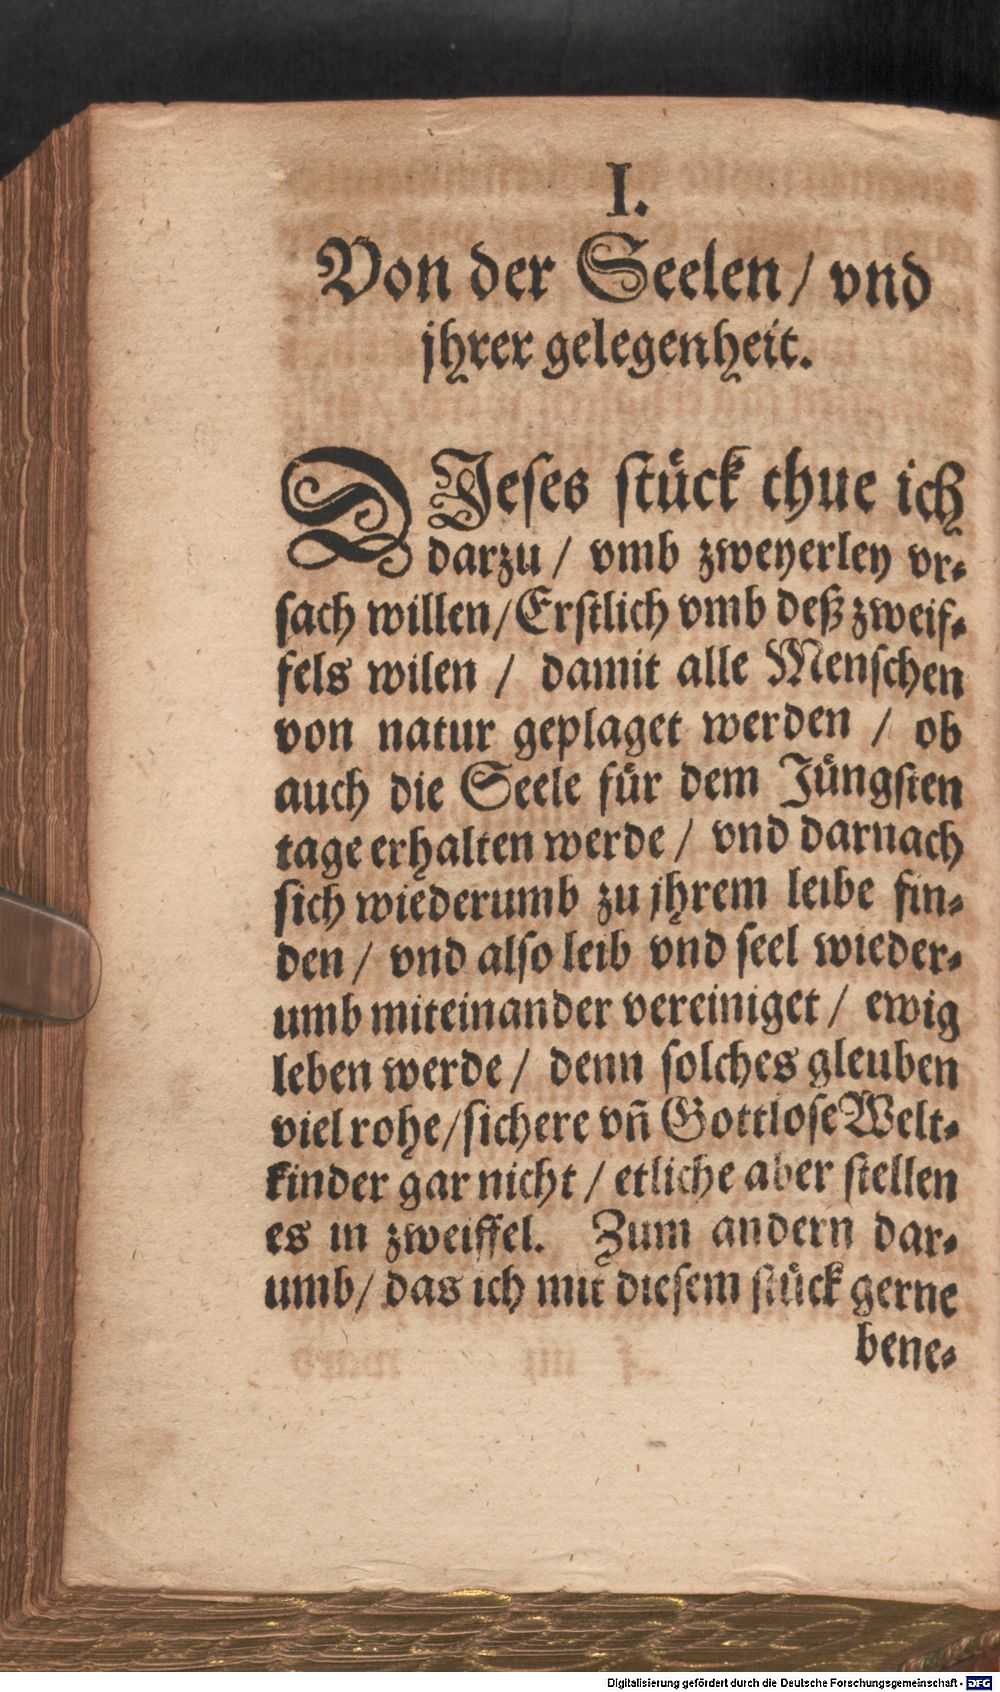 I.
Von der Seelen / vnd
jhrer gelegenheit.
DJeses stück thue ich
darzu / vmb zweyerley vr-
sach willen / Erstlich vmb deß zweif-
fels wilen / damit alle Menschen
von natur geplaget werden / ob
auch die Seele für dem Jüngsten
tage erhalten werde / vnd darnach
sich wiederumb zu jhrem leibe fin-
den / vnd also leib vnd seel wieder-
umb miteinander vereiniget / ewig
leben werde / denn solches gleuben
viel rohe / sichere vñ Gottlose Welt-
kinder gar nicht / etliche aber stellen
es in zweiffel. Zum andern dar-
umb / das ich mit diesem stück gerne
bene-
Digitalisierung gefördert durch die Deutsche Forschungsgemeinschaft - DFG